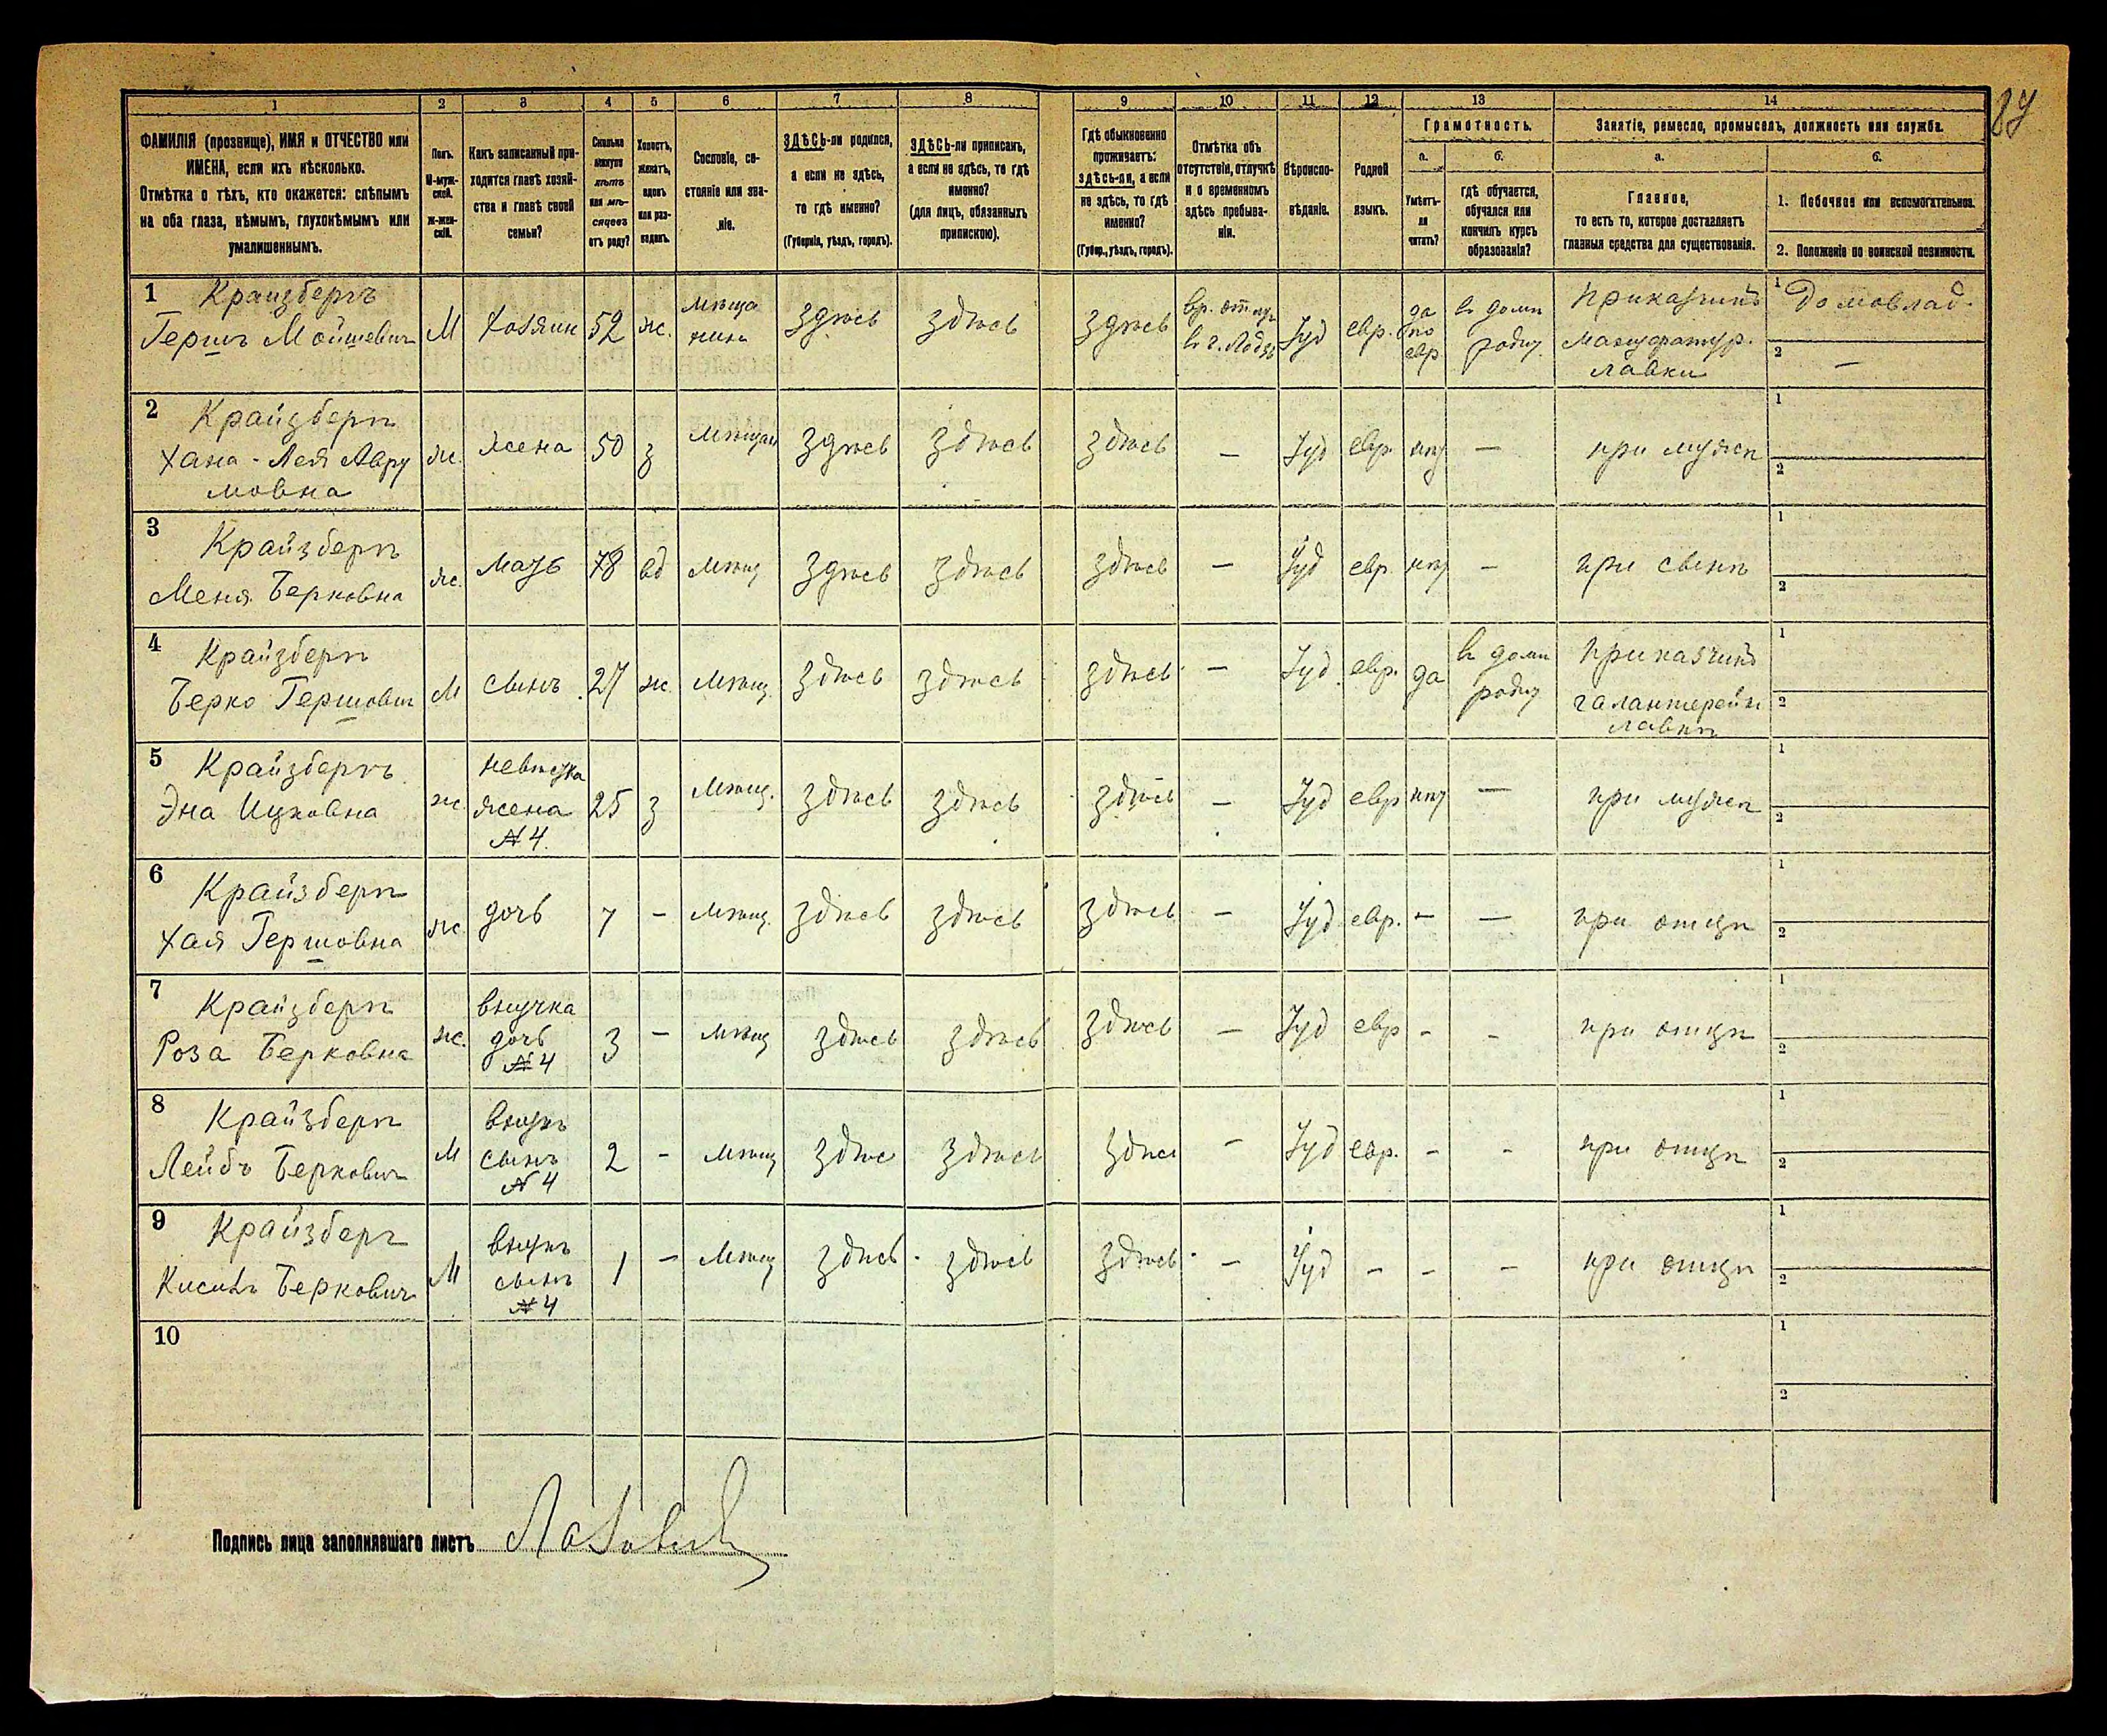 87
1 2 3 4 5 6 7 8 9 10 11 12 13 14
ФАМИЛІЯ (прозвище), ИМЯ и ОТЧЕСТВО или
ИМЕНА, если ихъ нѣсколько.
Отмѣтка о тѣхъ, кто окажется: слѣпымъ
на оба глаза, нѣмымъ, глухонѣмымъ или
умалишеннымъ.
Полъ.
М-муж-
ской.
Ж-жен-
скій.
Какъ записанный при-
ходится главѣ хозяй-
ства и главѣ своей
семьи?
Сколько
минуло
лѣтъ
или мѣ-
сяцевъ
отъ роду?
Холостъ,
женатъ,
вдовъ
или раз-
веденъ.
Сословіе, со-
стояніе или зва-
ніе.
ЗДѢСЬ-ли родился,
а если не здѣсь,
то гдѣ именно?
(Губернія, уѣздъ, городъ).
ЗДѢСЬ-ли приписанъ,
а если не здѣсь, то гдѣ
именно?
(для лицъ, обязанныхъ
припискою).
Гдѣ обыкновенно
проживаетъ:
здѣсь-ли, а если
не здѣсь, то гдѣ
именно?
(Губер., уѣздъ, городъ).
Отмѣтка объ
отсутствіи, отлучкѣ
и о временномъ
здѣсь пребыва-
ніи.
Вѣроиспо-
вѣданіе.
Родной
языкъ.
Грамотность.
а.
Умѣетъ-
ли
читать?
б.
гдѣ обучается,
обучался или
кончилъ курсъ
образованія?
Занятіе, ремесло, промыселъ, должность или служба.
а.
Главное,
то есть то, которое доставляетъ
главныя средства для существованія.
б.
1. Побочное или вспомогательное.
2. Положеніе по воинской повинности.
1 Крайзбергъ
Гершъ Мойшевичъ
М
хозяинъ
52
ж.
мѣща
нинъ
здѣсь
здѣсь
здѣсь
вр. отлуч
въ г. Лодзь
Іуд
евр.
да
по
евр.
въ домѣ
родит.
приказчикъ
мануфактур.
лавки
1 Домовлад.
2 —
2 Крайзбергъ
Хана-Лея Авру
мовна
ж.
жена
50
з
мѣщан
здѣсь
здѣсь
здѣсь
—
Іуд
евр
нѣт
—
при мужѣ
1
2
3 Крайзбергъ
Меня Берковна
ж.
мать
78
вд
мѣщ
здѣсь
здѣсь
здѣсь
—
Іуд
евр
нѣт
—
при сынѣ
1
2
4 Крайзбергъ
Берко Гершович
М
сынъ
27
ж.
мѣщ.
здѣсь
здѣсь
здѣсь
—
Іуд
евр.
да
въ домѣ
родит
приказчикъ
галантерейн
лавки
1
2
5 Крайзбергъ
Эна Ицковна
ж.
невѣстка
жена
№ 4.
25
з
мѣщ.
здѣсь
здѣсь
здѣсь
—
Іуд
евр
нѣт
—
при мужѣ
1
2
6 Крайзбергъ
Хая Гершовна
ж
дочь
7
—
мѣщ.
здѣсь
здѣсь
здѣсь
—
Іуд
евр.
—
—
при отцѣ
1
2
7 Крайзбергъ
Роза Берковна
ж.
внучка
дочь
№ 4
3
—
мѣщ
здѣсь
здѣсь
здѣсь
—
Іуд
евр
-
-
при отцѣ
1
2
8 Крайзбергъ
Лейбъ Беркович
М
внукъ
сынъ
№ 4
2
-
мѣщ
здѣс
здѣсь
здѣсь
-
Іуд
евр.
-
-
при отцѣ
1
2
9 Крайзберг
Беркович
М
внукъ
сынъ
№ 4
1
—
мѣщ
здѣсь
здѣсь
здѣсь
—
Іуд
-
-
-
при отцѣ
1
2
10
1
2
Подпись лица заполнявшаго листъ